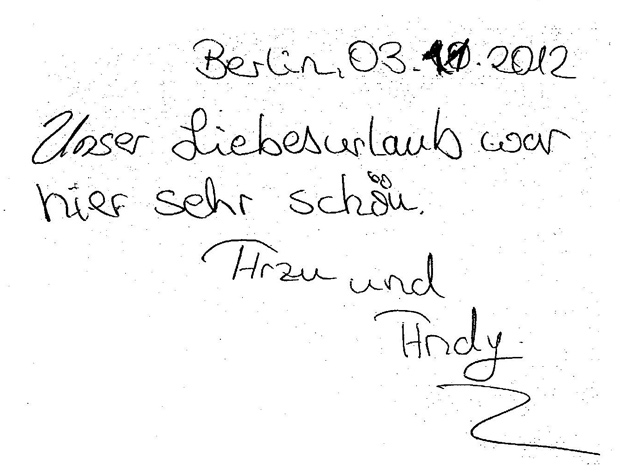 Berlin, 03.10.2012
Unser Liebesurlaub war
hier sehr schön.
Arzu und
Andy